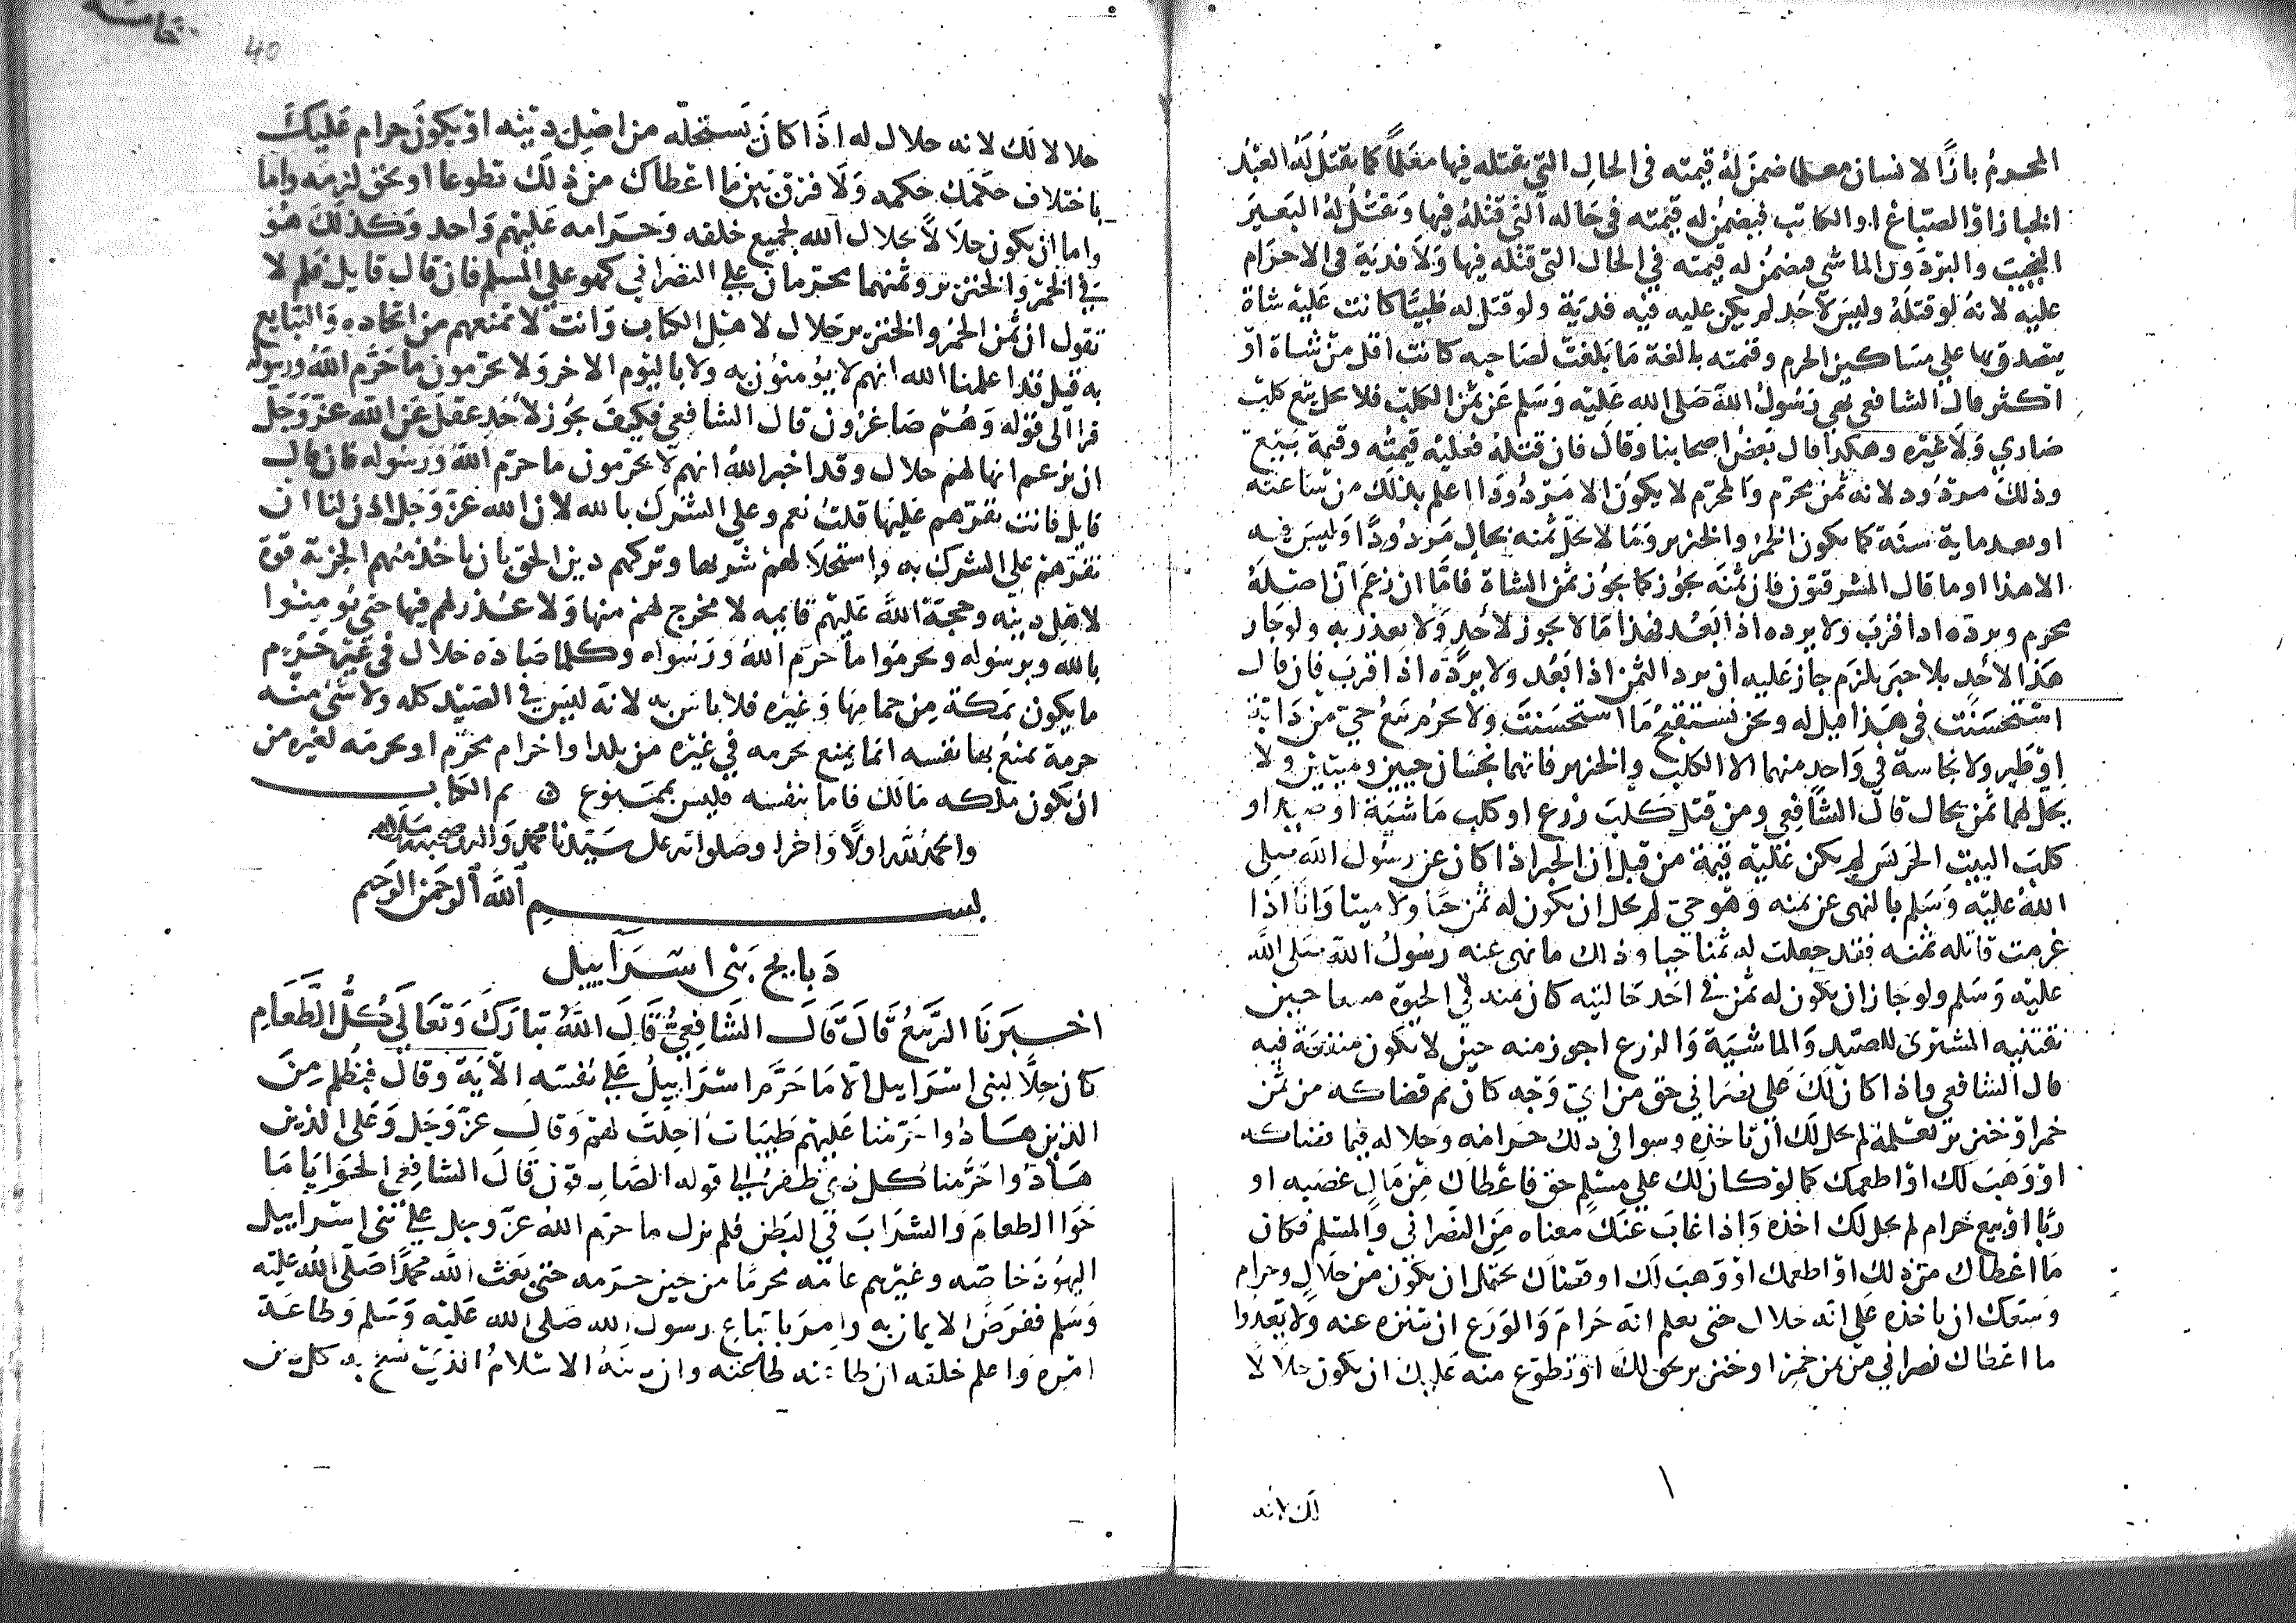 المحرم بازا لانسان معلما ضمن له قيمته في الحال التي يقتله فيها معلما كما يقتل له العبد
الخباز او الصباغ او الكاتب فيضمن له قيمته في حاله التي قتله فيها ويقتل له البعير
النجيب والبرذون الماشي فيضمن له قيمته في الحال التي قتله فيها ولا فدية في الاحرام
عليه لانه لو قتله وليس لاحد لم يكن عليه فيه فدية ولو قتل له ظبيا كانت عليه شاة
يتصدق بها على مساكين الحرم وقيمته بالغة ما بلغت لصاحبه كانت اقل من شاة او
اكثر قال الشافعي نهى رسول الله صلى الله عليه وسلم عن ثمن الكلب فلا يحل بيع كلب
ضاري ولا غيره وهكذا قال بعض اصحابنا وقال فان قتله فعليه قيمته وقيمة بيع
وذلك مردود لانه ثمن محرم والمحرم لا يكون الا مردودا اعلم بذلك من ساعته
او بعد ماية سنة كما يكون الخمر والخنزير وما لا يحل ثمنه بحال مردودا وليس فيه
الا هذا او ما قال المشرقيون فان ثمنه يجوز كما يجوز ثمن الشاة فاما ان زعم ان اصله
محرم ويرده اذا قرب ولا يرده اذا بعد فهذا ما لا يجوز لاحد ولا يعذر به ولو جاز
هذا لاحد بلا خبر يلزم جاز عليه ان يرد الثمن اذا بعد ولا يرده اذا قرب فان قال
استحسنت في هذا قيل له ونحن نستقبح ما استحسنت ولا يحرم بيع حي من دابة
او طير ولا نجاسة في واحد منهما الا الكلب والخنزير فانهما نجسان حيين وميتين ولا
يحل لهما ثمن بحال قال الشافعي ومن قتل كلب زرع او كلب ماشية او صيد او
كلب البيت الحرس لم يكن عليه قيمة من قبل ان الخبر اذا كان عن رسول الله صلى
الله عليه وسلم بالنهي عن ثمنه وهو حي لم يحل ان يكون له ثمن حيا ولا ميتا وانا اذا
غرمت قاتله ثمنه فقد جعلت له ثمنا حيا وذلك ما نهى عنه رسول الله صلى الله
عليه وسلم ولو جاز ان يكون له ثمن في احد حاليه كان ثمنه في الحيوة حين
يقتنيه المشتري للصيد والماشية والزرع اجوز منه حين لا يكون منفعة فيه
قال الشافعي واذا كان لك على نصراني حق من اي وجه كان ثم قضاكه من ثمن
خمر او خنزير تعلمه لم يحل لك ان تاخذه وسوا في ذلك حرامه وحلاله فيما قضاكه
او وهب لك او اطعمك كما لو كان لك على مسلم حق فاعطاك من مال غصبه او
ربا او بيع حرام لم يحل لك اخذه واذا غاب عنك معناه من النصراني والمسلم فكان
ما اعطاك من ذلك او اطعمك او وهب لك او قضاك يحتمل ان يكون من حلال وحرام
وسعك ان تاخذه على انه حلال حتى تعلم انه حرام والورع ان تتنزه عنه ولا يعدوا
ما اعطاك نصراني من ثمن خمر او خنزير بحق لك او تطوع منه عليك ان يكون حلالا
لك لانه
40
حلالا لك لانه حلال له اذا كان يستحله من اصل دينه او يكون حرام عليك
باختلاف حكمك حكمه ولا فرق بين ما اعطاك من ذلك تطوعا او بحق لزمه واما
واما ان يكون حلالا حلال الله لجميع خلقه وحرامه عليهم واحد وكذلك هو
في الخمر والخنزير وثمنهما محرمان على النصراني كهو على المسلم فان قال قايل فلم لا
تقول ان ثمن الخمر والخنزير حلال لاهل الكتاب وانت لا تمنعهم من اتخاذه والتبايع
به قيل قد اعلمنا الله انهم لا يؤمنون به ولا باليوم الاخر ولا يحرمون ما حرم الله ورسوله
قرا الى قوله وهم صاغرون قال الشافعي فكيف يجوز لاحد عقل عن الله عز وجل
ان يزعم انها لهم حلال وقد اخبر الله انهم لا يحرمون ما حرم الله ورسوله فان قال
قايل فانت تقرهم عليها قلت نعم وعلى الشرك بالله لان الله عز وجل اذن لنا ان
نقرهم على الشرك به واستحلالهم شربها وتركهم دين الحق بان ناخذ منهم الجزية قوة
لاهل دينه وحجة الله عليهم قايمه لا مخرج لهم منها ولا عذر لهم فيها حتى يومنوا
بالله وبرسوله ويحرموا ما حرم الله ورسوله وكلما صاده حلال في غير حرم
ما يكون بمكة من حمامها وغيره فلا باس به لانه ليس في الصيد كله ولا شئ منه
حرمة يمنع بها نفسه انما يمنع بحرمه في غيره من بلد او احرام محرم او بحرمه لغيره من
ان يكون ملكه مالك فاما بنفسه فليس بممنوع تم الكتاب
والحمد لله اولا واخرا وصلواته على سيدنا محمد واله وصحبه وسلامه
بسم الله الرحمن الرحيم
ذبايح بني اسراييل
اخبرنا الربيع قال قال الشافعي قال الله تبارك وتعالى كل الطعام
كان حلا لبني اسراييل الا ما حرم اسراييل على نفسه الاية وقال فبظلم من
الذين هادوا حرمنا عليهم طيبات احلت لهم وقال عز وجل وعلى الذين
هادوا حرمنا كل ذي ظفر الى قوله لصادقون قال الشافعي الحوايا ما
حوا الطعام والشراب في البطن فلم يزل ما حرم الله عز وجل على بني اسراييل
اليهود خاصه وغيرهم عامه محرما من حين حرمه حتى بعث الله محمدا صلى الله عليه
وسلم ففرض الايمان به وامر باتباع رسول الله صلى الله عليه وسلم وطاعة
امره واعلم خلقه ان طاعته طاعته وان دينه الاسلام الذي نسخ به كل دين